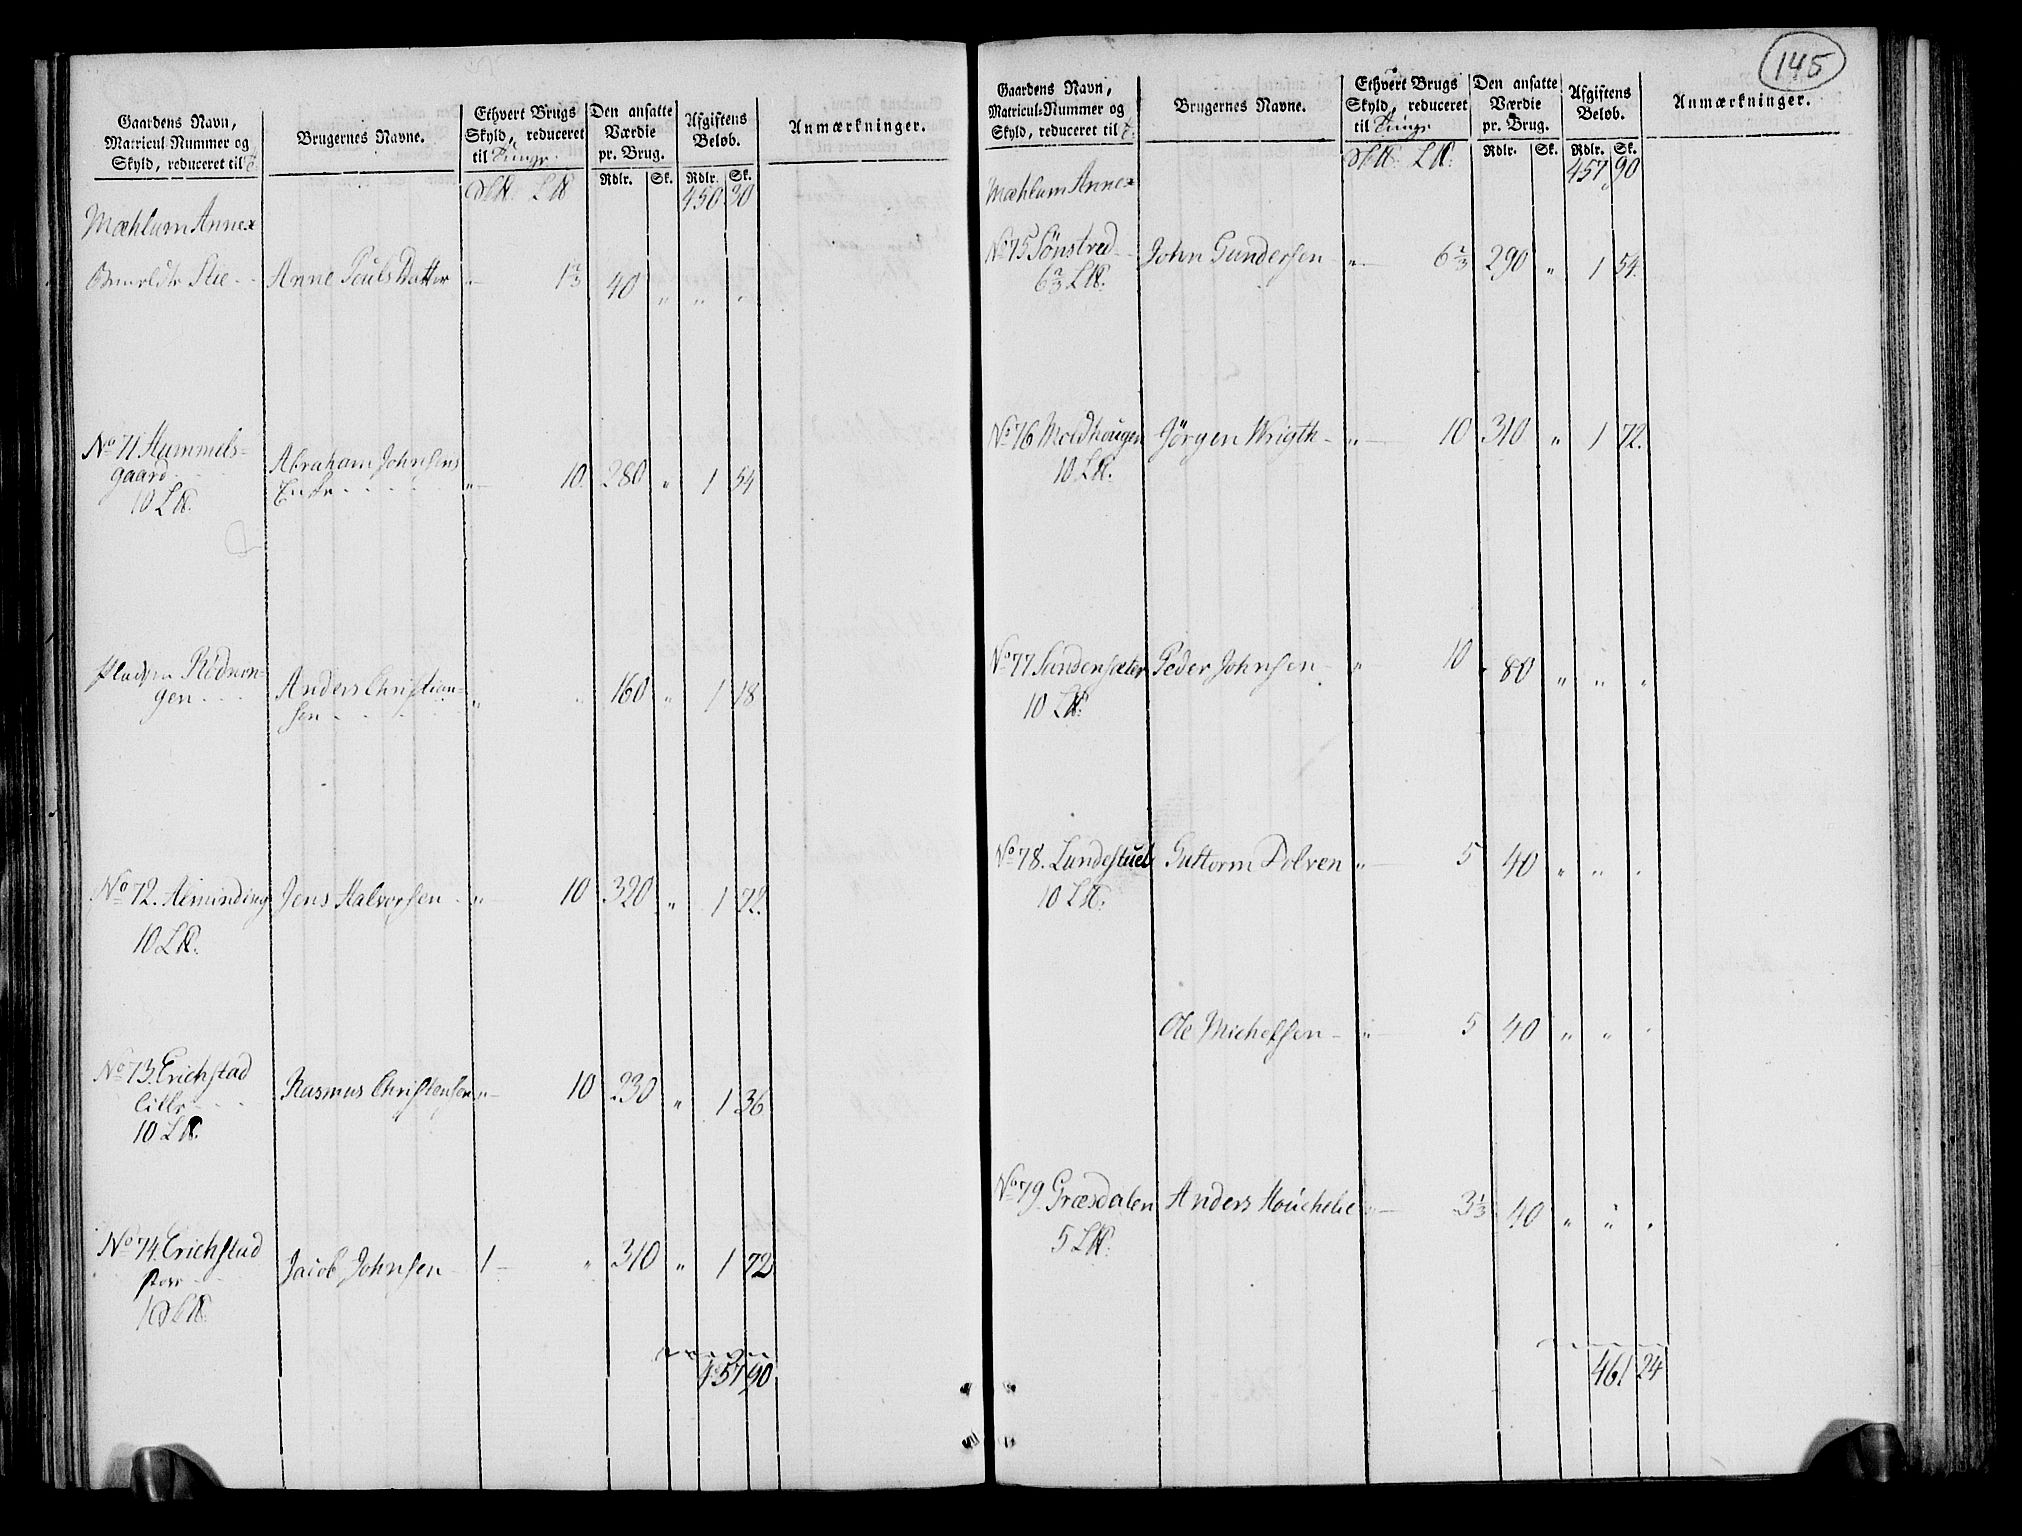 145
Gaardens Navn,
Matricul-Nummer og
Skyld, reduceret til
Brugernes Navne.
Ethvert Brugs
Skyld, reduceret
til Tunge
Den ansatte
Værdie
pr. Brug.
Afgiftens
Beløb.
Anmærkninger.
Rdlr. Sk. Rdlr. Sk.
450 30
Mæhlum Annex
Stie Anne Pouls Datter „ 1 2/3 40 „ „ „
No 71 Hammels-
gaard
10 L℔.
Abraham Johnsens
Enke „ 10. 280 „ 1 54
Pladsen Rödnin-
gen
Anders Christian-
sen „ „ 160 „ 1 18
No 72. Alminding Jens Halvorsen „ 10 320 „ 1 72.
10 L℔.
No 73. Erichstad
lille
10 L℔.
Rasmus Christensen „ 10 230 „ 1 36
No 74. Erichstad
store
1 S℔.
Jacob Johnsen 1 „ 310 „ 1 72
457 90
Gaardens Navn,
Matricul-Nummer og
Skyld, reduceret til
Brugernes Navne.
Ethvert Brugs
Skyld, reduceret
til Tunge
Den ansatte
Værdie
pr. Brug.
Afgiftens
Beløb.
Anmærkninger.
Rdlr. Sk. Rdlr. Sk.
457 90
Mæhlum Annex
No 75 Sönstred John Gundersen „ 6 2/3 290 „ 1 54.
6 2/3 L℔.
No 76 Moldhougen Jörgen Wrigth „ 10 310 „ 1 72.
10 L℔.
No 77 Sundensæter Peder Johnsen „ 10 80 „ „ „
10 L℔.
No 78. Lundestuel Guttorm Dolven „ 5 40 „ „ „
10 L℔.
Ole Michelsen „ 5 40 „ „ „
No 79. Græsdalen Anders „ 3 1/3 40 „ „ „
5 L℔.
461 24